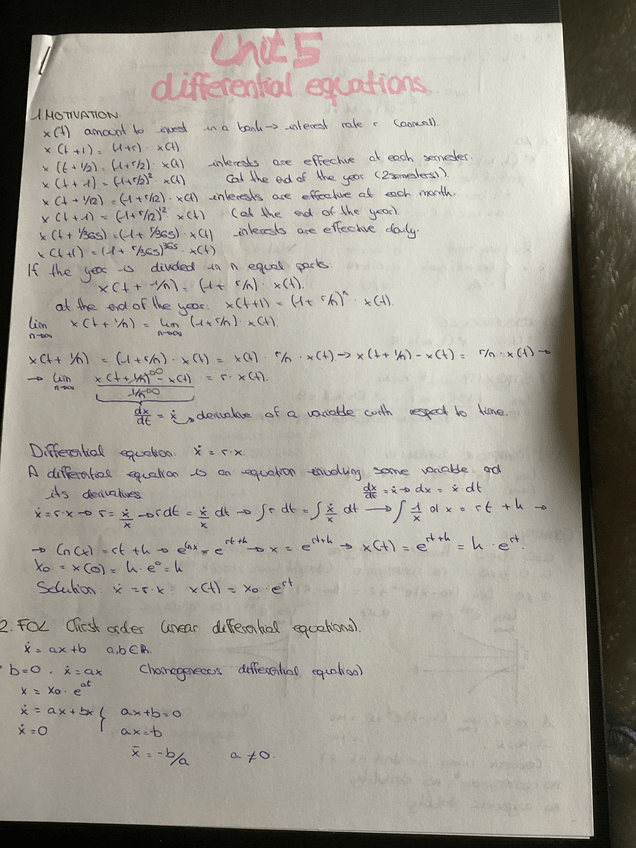 Unit 5
differential equations
1 MOTIVATION
x(t) amount to invest in a bank → interest rate r (annual).
x(t+1) = (1+r) · x(t)
x(t+1/2) = (1+r/2) · x(t) interests are effective at each semester.
x(t+1) = (1+r/2)² · x(t) (at the end of the year (2 semesters)).
x(t+1/12) = (1+r/12) · x(t) interests are effective at each month.
x(t+1) = (1+r/12)¹² · x(t) (at the end of the year).
x(t+1/365) = (1+r/365) · x(t) interests are effective daily.
x(t+1) = (1+r/365)³⁶⁵ · x(t)
If the year is divided in n equal parts.
x(t+1/n) = (1+r/n) · x(t).
at the end of the year: x(t+1) = (1+r/n)ⁿ · x(t).
lim n→∞ x(t+1/n) = lim n→∞ (1+r/n) · x(t)
x(t+1/n) = (1+r/n) · x(t) = x(t) · r/n · x(t) → x(t+1/n) - x(t) = r/n · x(t) →
→ lim n→∞ x(t+1/n)^∞ - x(t) / 1/n^∞ = r · x(t).
dx/dt = ẋ → derivative of a variable with respect to time.
Differential equation: ẋ = r·x
A differential equation is an equation involving some variable and
its derivatives dx/dt = ẋ → dx = ẋ dt
ẋ = r·x → r = ẋ/x → r dt = ẋ/x dt → ∫r dt = ∫ẋ/x dt → ∫1/x dx = rt + h →
→ ln(x) = rt+h → e^lnx = e^rt+h → x = e^rt+h → x(t) = e^rt+h = h · e^rt.
x₀ = x(0) = h · e⁰ = h
Solution: ẋ = r·x x(t) = x₀ · e^rt
2. FOL (first order linear differential equations).
ẋ = ax+b a,b∈ℝ.
· b=0. ẋ = ax (homogeneous differential equation)
x = x₀ · e^at
ẋ = ax+bx { ax+b=0
ẋ = 0 ax=-b
x̄ = -b/a a≠0.